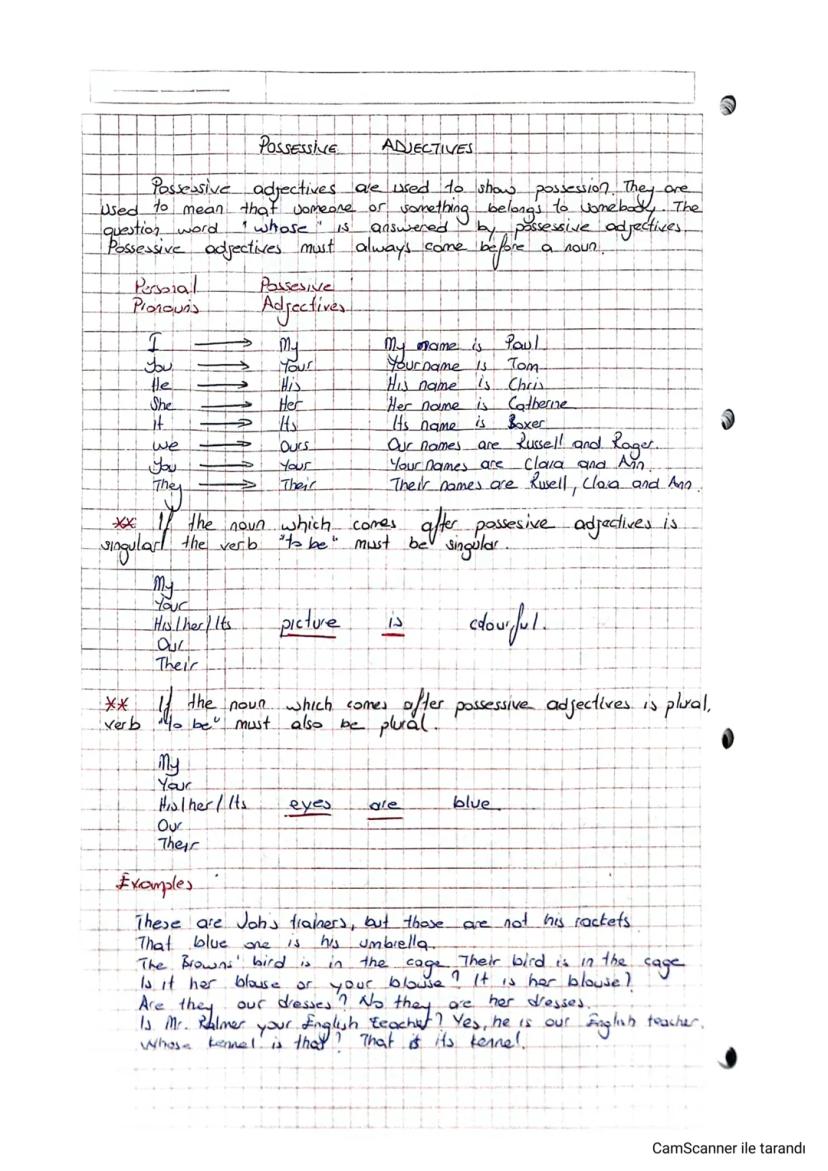 POSSESSIVE ADJECTIVES
Possessive adjectives are used to show possession. They are
used to mean that someone or something belongs to somebody. The
question word "whose" is answered by possessive adjectives.
Possessive adjectives must always come before a noun.
Personal Possesive
Pronouns Adjectives
I → My My name is Paul
You → Your Your name is Tom
He → His His name is Chris
She → Her Her name is Catherine
It → Its Its name is Boxer
We → Ours Our names are Russell and Roger.
You → Your Your names are Clara and Ann.
They → Their Their names are Rusell, Clara and Ann.
** If the noun which comes after possesive adjectives is
singular the verb "to be" must be singular.
My
Your
His/her/Its picture is colourful.
Our
Their
** If the noun which comes after possessive adjectives is plural,
verb "to be" must also be plural.
My
Your
His/her/Its eyes are blue
Our
Their
Examples
These are Joh's trainers, but those are not his rackets
That blue one is his umbrella.
The Browns' bird is in the cage. Their bird is in the cage
Is it her blouse or your blouse? It is her blouse?
Are they our dresses? No they are her dresses.
Is Mr. Palmer your English teacher? Yes, he is our English teacher.
Whose kennel is that? That is its kennel.
CamScanner ile tarandı